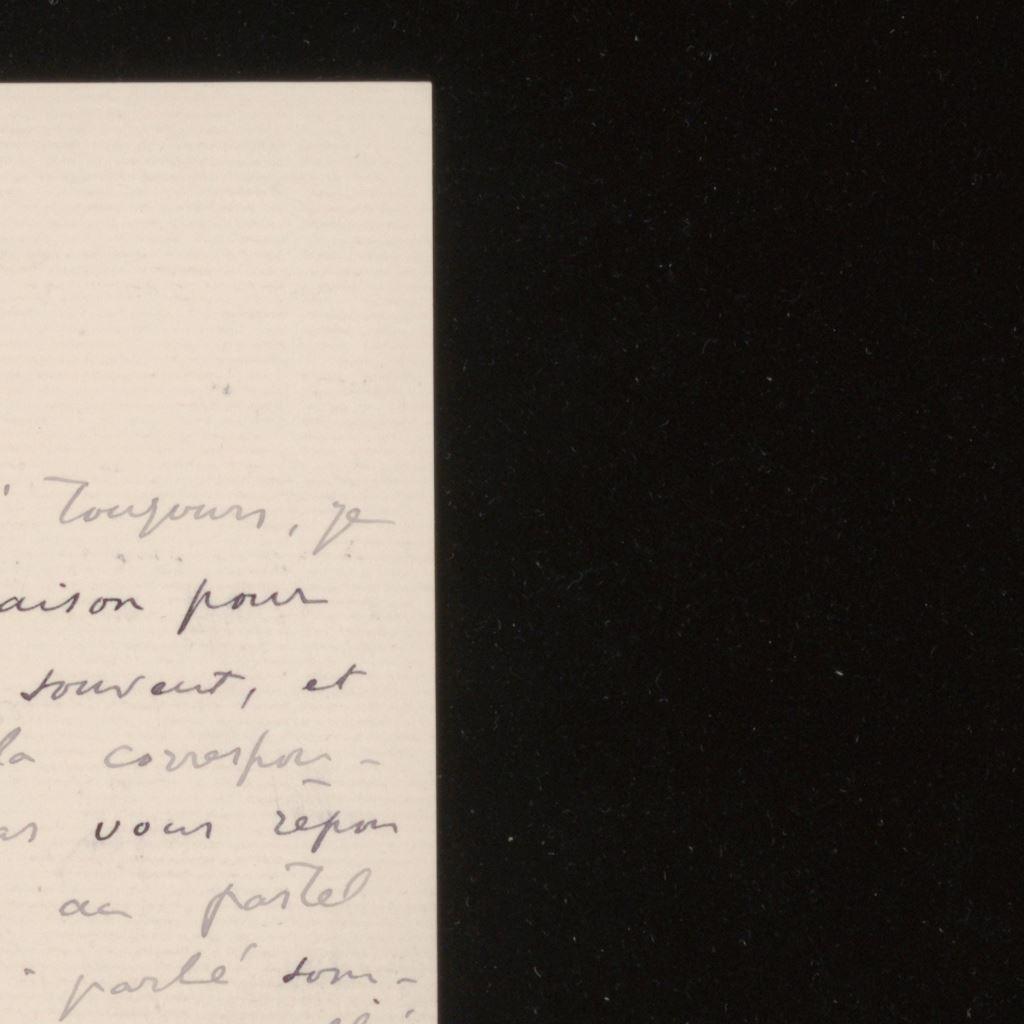 toujours, je
aison pour
souvent, et
la correspon-
as vous répon
au pastel
parlé som-